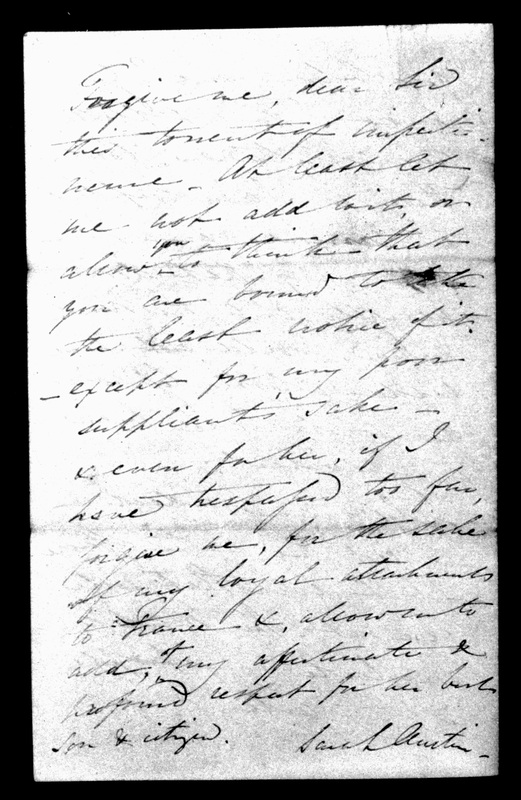 Forgive me, dear Sir
this torrent of imperti-
nence - At least let
me not add to it, or
allow you to think that
you are bound to take
the least notice of it.
- except for my poor
suppliant's sake -
& even for her, if I
have trespassed too far,
forgive me, for the sake
of my loyal attachment
to France &, allow me to
add, of my affectionate &
profound respect for her best
son & citizen.
Sarah Austin -